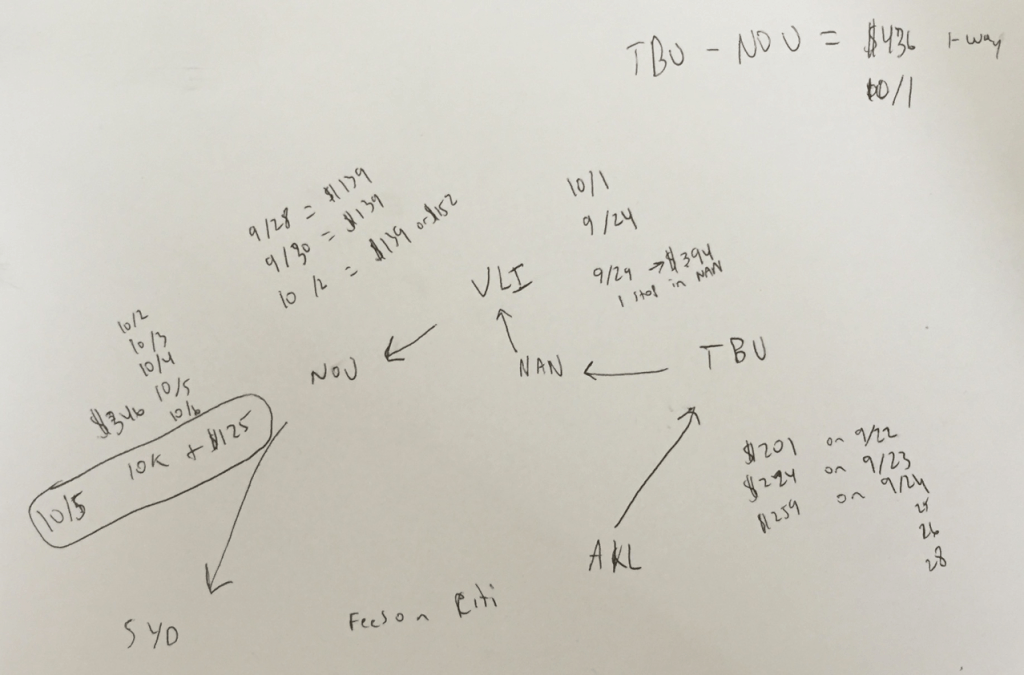 TBU - NOU = $436 1-way
10/1
9/28 = $139
9/30 = $139
10/2 = $139 or $152
10/1
9/24
9/29 → $394
1 stop in NAN
VLI
NOU
NAN
TBU
10/2
10/3
10/4
10/5
$346 10/6
10/5 10K + $125
$201 on 9/22
$224 on 9/23
$259 on 9/24
25
26
28
AKL
SYD
Fees on Citi